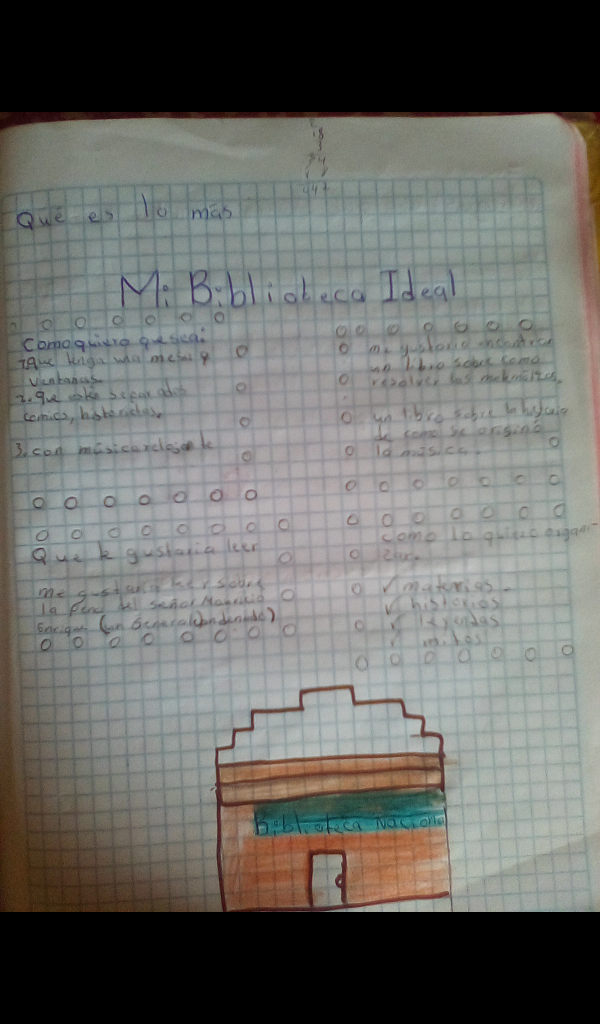 Qué es lo más
Mi Biblioteca Ideal
Como quiero que sea:
1. que tenga una mesa y
ventanas.
2. que esté separados
comics, historietas.
3. con música relajante
me gustaria encontrar
un libro sobre como
resolver las matemáticas.
un libro sobre la historia
de como se originó
la música.
Que te gustaria leer
me gustaria leer sobre
la pena del señor Mauricio
Enrique (un General condenado)
como lo quiero organi-
zar.
✓ materias.
✓ historias
✓ leyendas
✓ mitos
Biblioteca Nacional